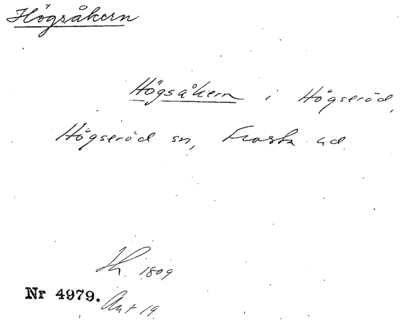 Högsåkern
Högsåkern i Högseröd,
Högseröd sn, Frosta hd
1809
Nr 4979.
Akt 19